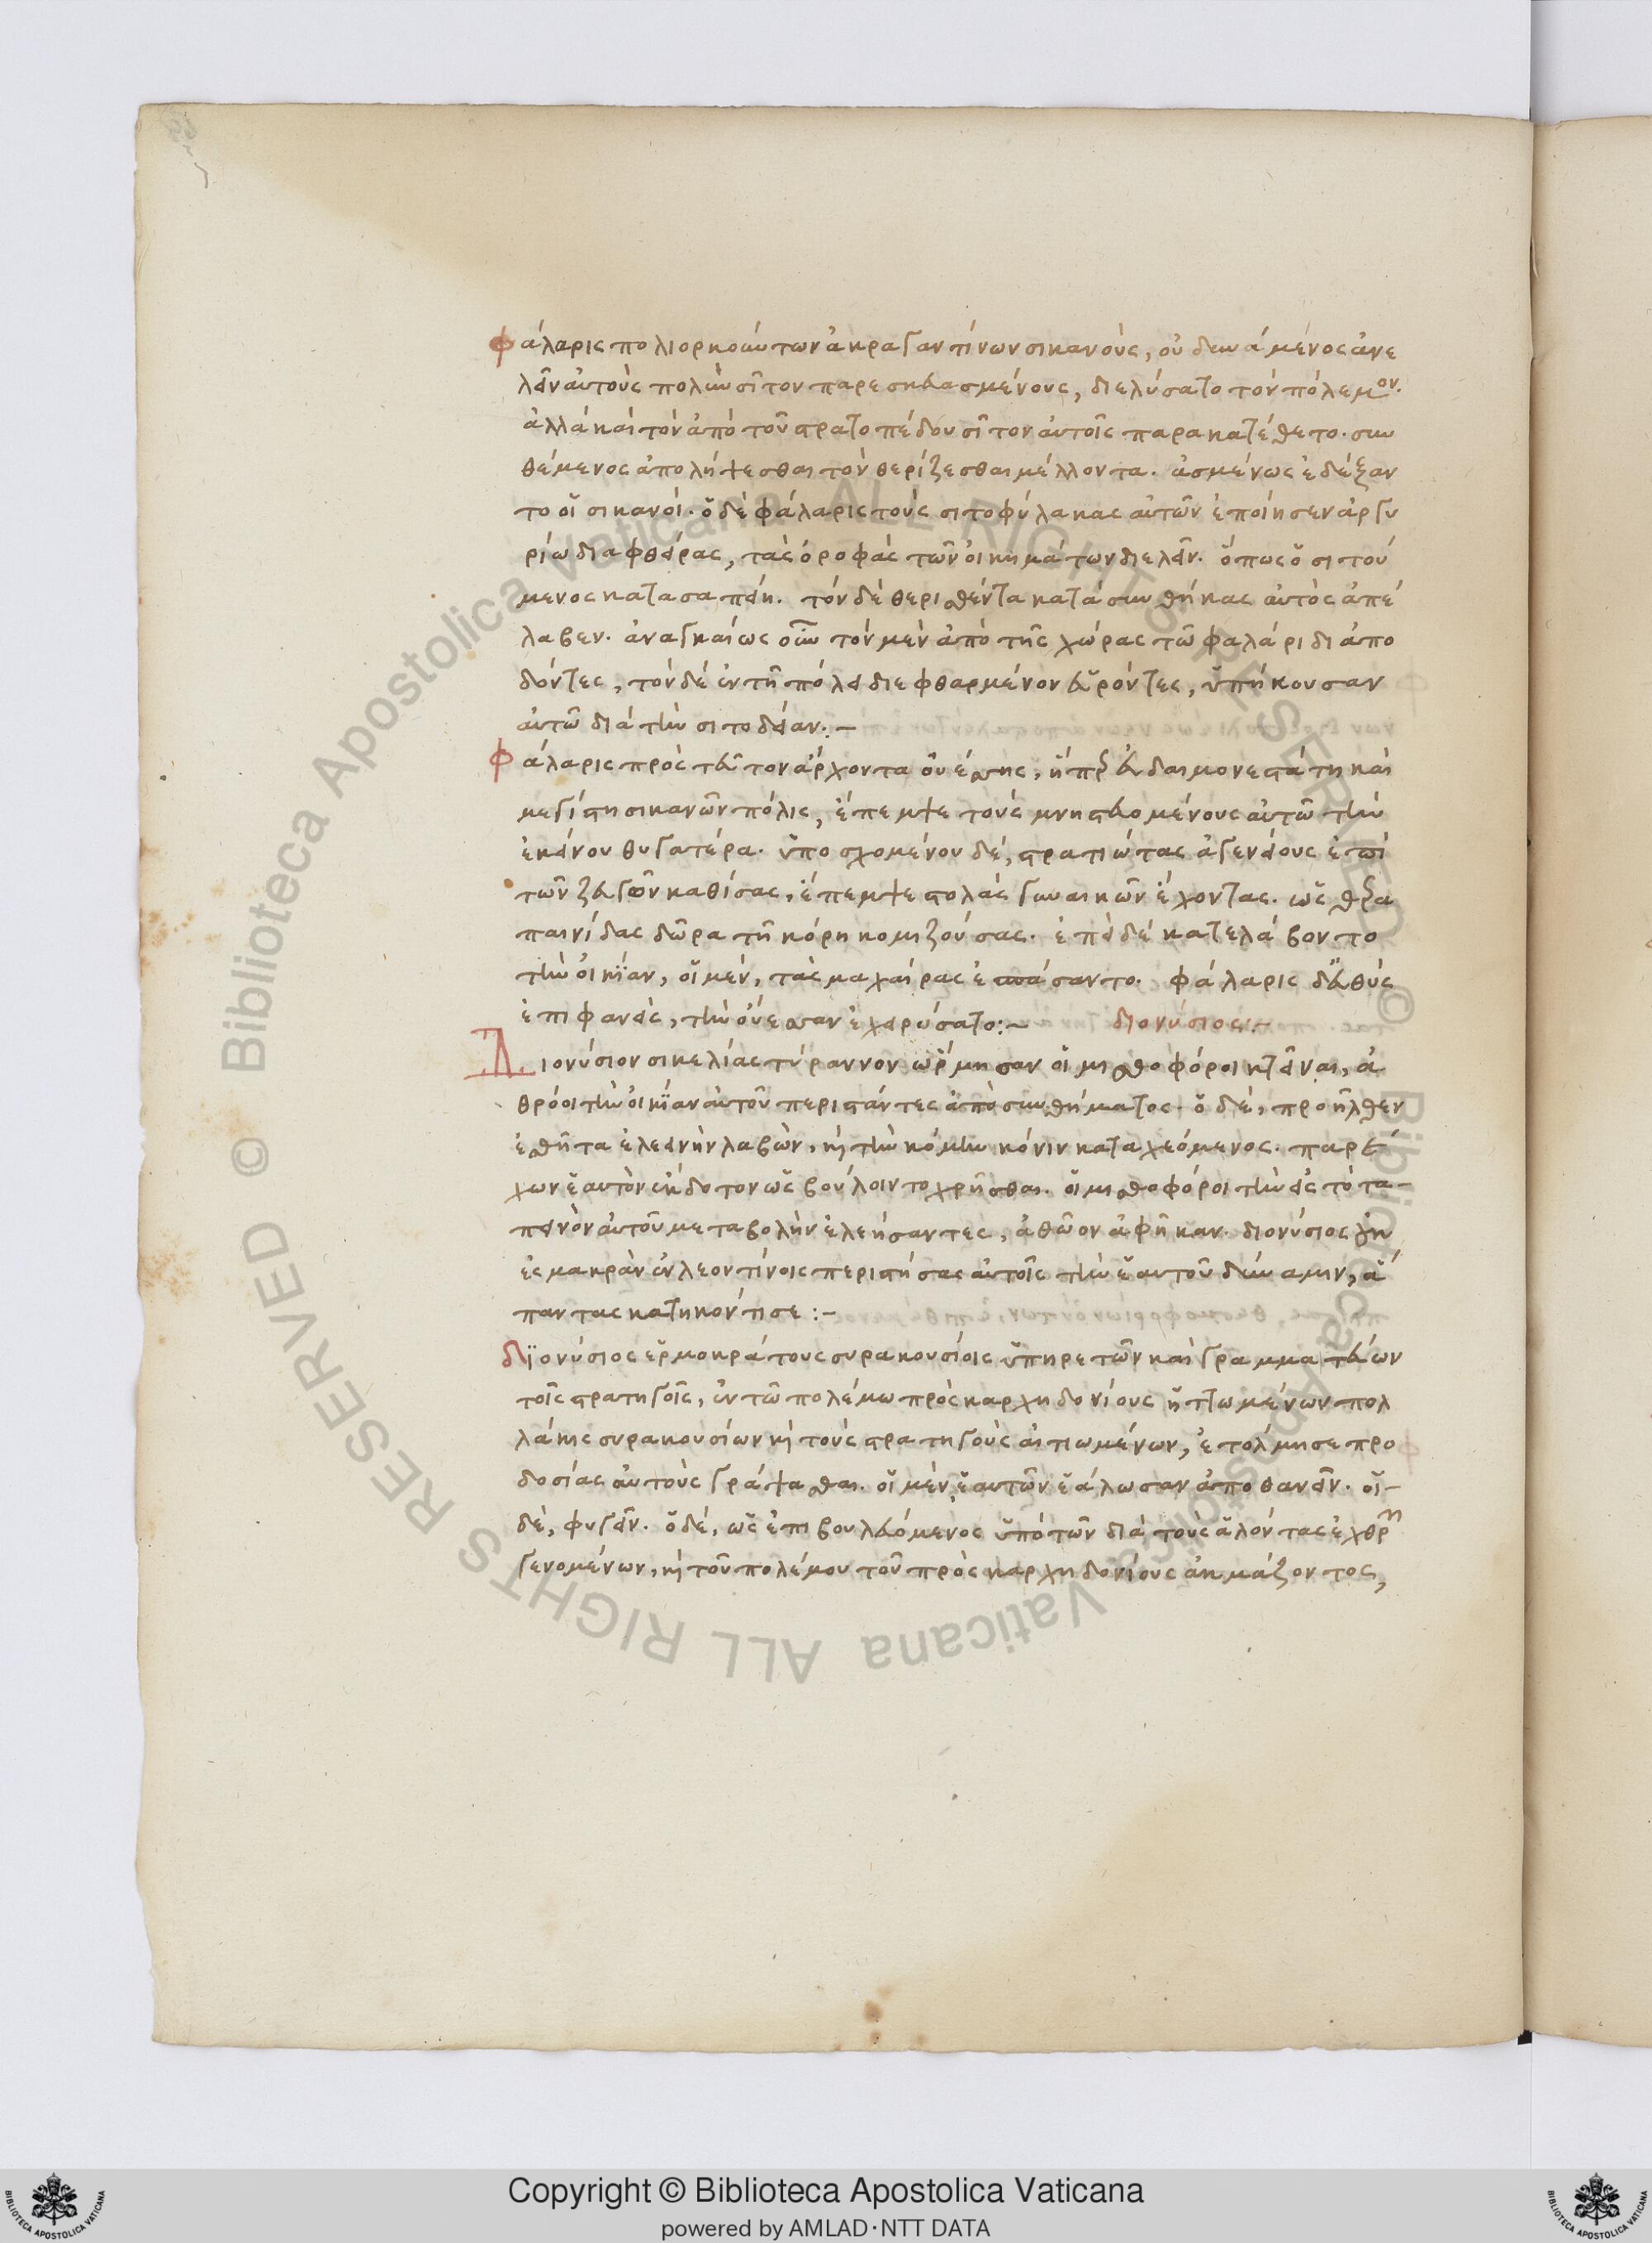 φάλαρις πολιορκούντων ἀκραγαντίνων σικανοὺς, οὐ δυνάμενος ἀνε
λεῖν αὐτοὺς πολὺν σῖτον παρεσκευασμένους, διελύσατο τὸν πόλεμον.
ἀλλὰ καὶ τὸν ἀπὸ τοῦ στρατοπέδου σῖτον αὐτοῖς παρακατέθετο. συν
θέμενος ἀπολήψεσθαι τὸν θερίζεσθαι μέλλοντα. ἀσμένως ἐδέξαν
το οἱ σικανοί. ὁ δὲ φάλαρις τοὺς σιτοφύλακας αὐτῶν ἐποίησεν ἀργυ
ρίω διαφθείρας, τὰς ὀροφὰς τῶν οἰκημάτων διελεῖν. ὅπως ὁ σιτού
μενος κατασαπείη. τὸν δὲ θερισθέντα κατὰ συνθήκας αὐτὸς ἀπέ
λαβεν. ἀναγκαίως οὖν τὸν μὲν ἀπὸ τῆς χώρας τῶ φαλάριδι ἀπο
δόντες, τὸν δὲ ἐν τῆ πόλει διεφθαρμένον εὑρόντες, ὑπήκουσαν
αὐτῶ διὰ τὴν σιτοδείαν:–
φάλαρις πρὸς τεῦτον ἄρχοντα οὐέσσης, ἥπερ εὐδαιμονεστάτη καὶ
μεγίστη σικανῶν πόλις, ἔπεμψε τοὺς μνηστευομένους αὐτῶ τὴν
ἐκείνου θυγατέρα. ὑποσχομένου δέ, στρατιώτας ἀγενείους ἐπὶ
τῶν ζευγῶν καθίσας, ἔπεμψε στολὰς γυναικῶν ἔχοντας. ὡς θερα
παινίδας δῶρα τῆ κόρη κομιζούσας. ἐπεὶ δὲ κατελάβοντο
τὴν οἰκίαν, οἱ μὲν, τὰς μαχαίρας ἐσπάσαντο. φάλαρις δ' εὐθὺς
ἐπιφανεὶς, τὴν οὔεσσαν ἐχειρώσατο:– διονύσιος:–
Διονύσιον σικελίας τύραννον ὥρμησαν οἱ μισθοφόροι κτεῖναι, ἀ
θρόοι τὴν οἰκίαν αὐτοῦ περιστάντες ἀπὸ συνθήματος. ὁ δὲ, προῆλθεν
ἐσθῆτα ἐλεεινὴν λαβὼν, καὶ τὴν κόμην κόνιν καταχεόμενος. παρέ
χων ἑαυτὸν ἔκδοτον ὡς βούλοιντο χρῆσθαι. οἱ μισθοφόροι τὴν εἰς τὸ τα–
πεινὸν αὐτοῦ μεταβολὴν ἐλεήσαντες, ἀθῶον ἀφῆκαν. διονύσιος
ἐς μακρὰν ἐν λεοντίνοις περιστήσας αὐτοῖς τὴν ἑαυτοῦ δύναμιν, ἅ
παντας κατηκόντισε:–
διονύσιος ἑρμοκράτους συρακουσίοις ὑπηρετῶν καὶ γραμματεύων
τοῖς στρατηγοῖς, ἐν τῶ πολέμω πρὸς καρχηδονίους ἡττωμένων πολ
λάκις συρακουσίων καὶ τοὺς στρατηγοὺς αἰτιωμένων, ἐτόλμησε προ
δοσίας αὐτοὺς γράψασθαι. οἱ μὲν, ἑαυτῶν ἑάλωσαν ἀποθανεῖν. οἱ–
δὲ, φυγεῖν. ὁ δέ, ὡς ἐπιβουλευόμενος ὑπὸ τῶν διὰ τοὺς ἁλόντας ἐχθρῶν
γενομένων, καὶ τοῦ πολέμου τοῦ πρὸς καρχηδονίους ἀκμάζοντος,
© Biblioteca Apostolica Vaticana ALL RIGHTS RESERVED
© Biblioteca Apostolica Vaticana ALL RIGHTS RESERVED
Copyright © Biblioteca Apostolica Vaticana
powered by AMLAD·NTT DATA
BIBLIOTECA APOSTOLICA VATICANA
BIBLIOTECA APOSTOLICA VATICANA